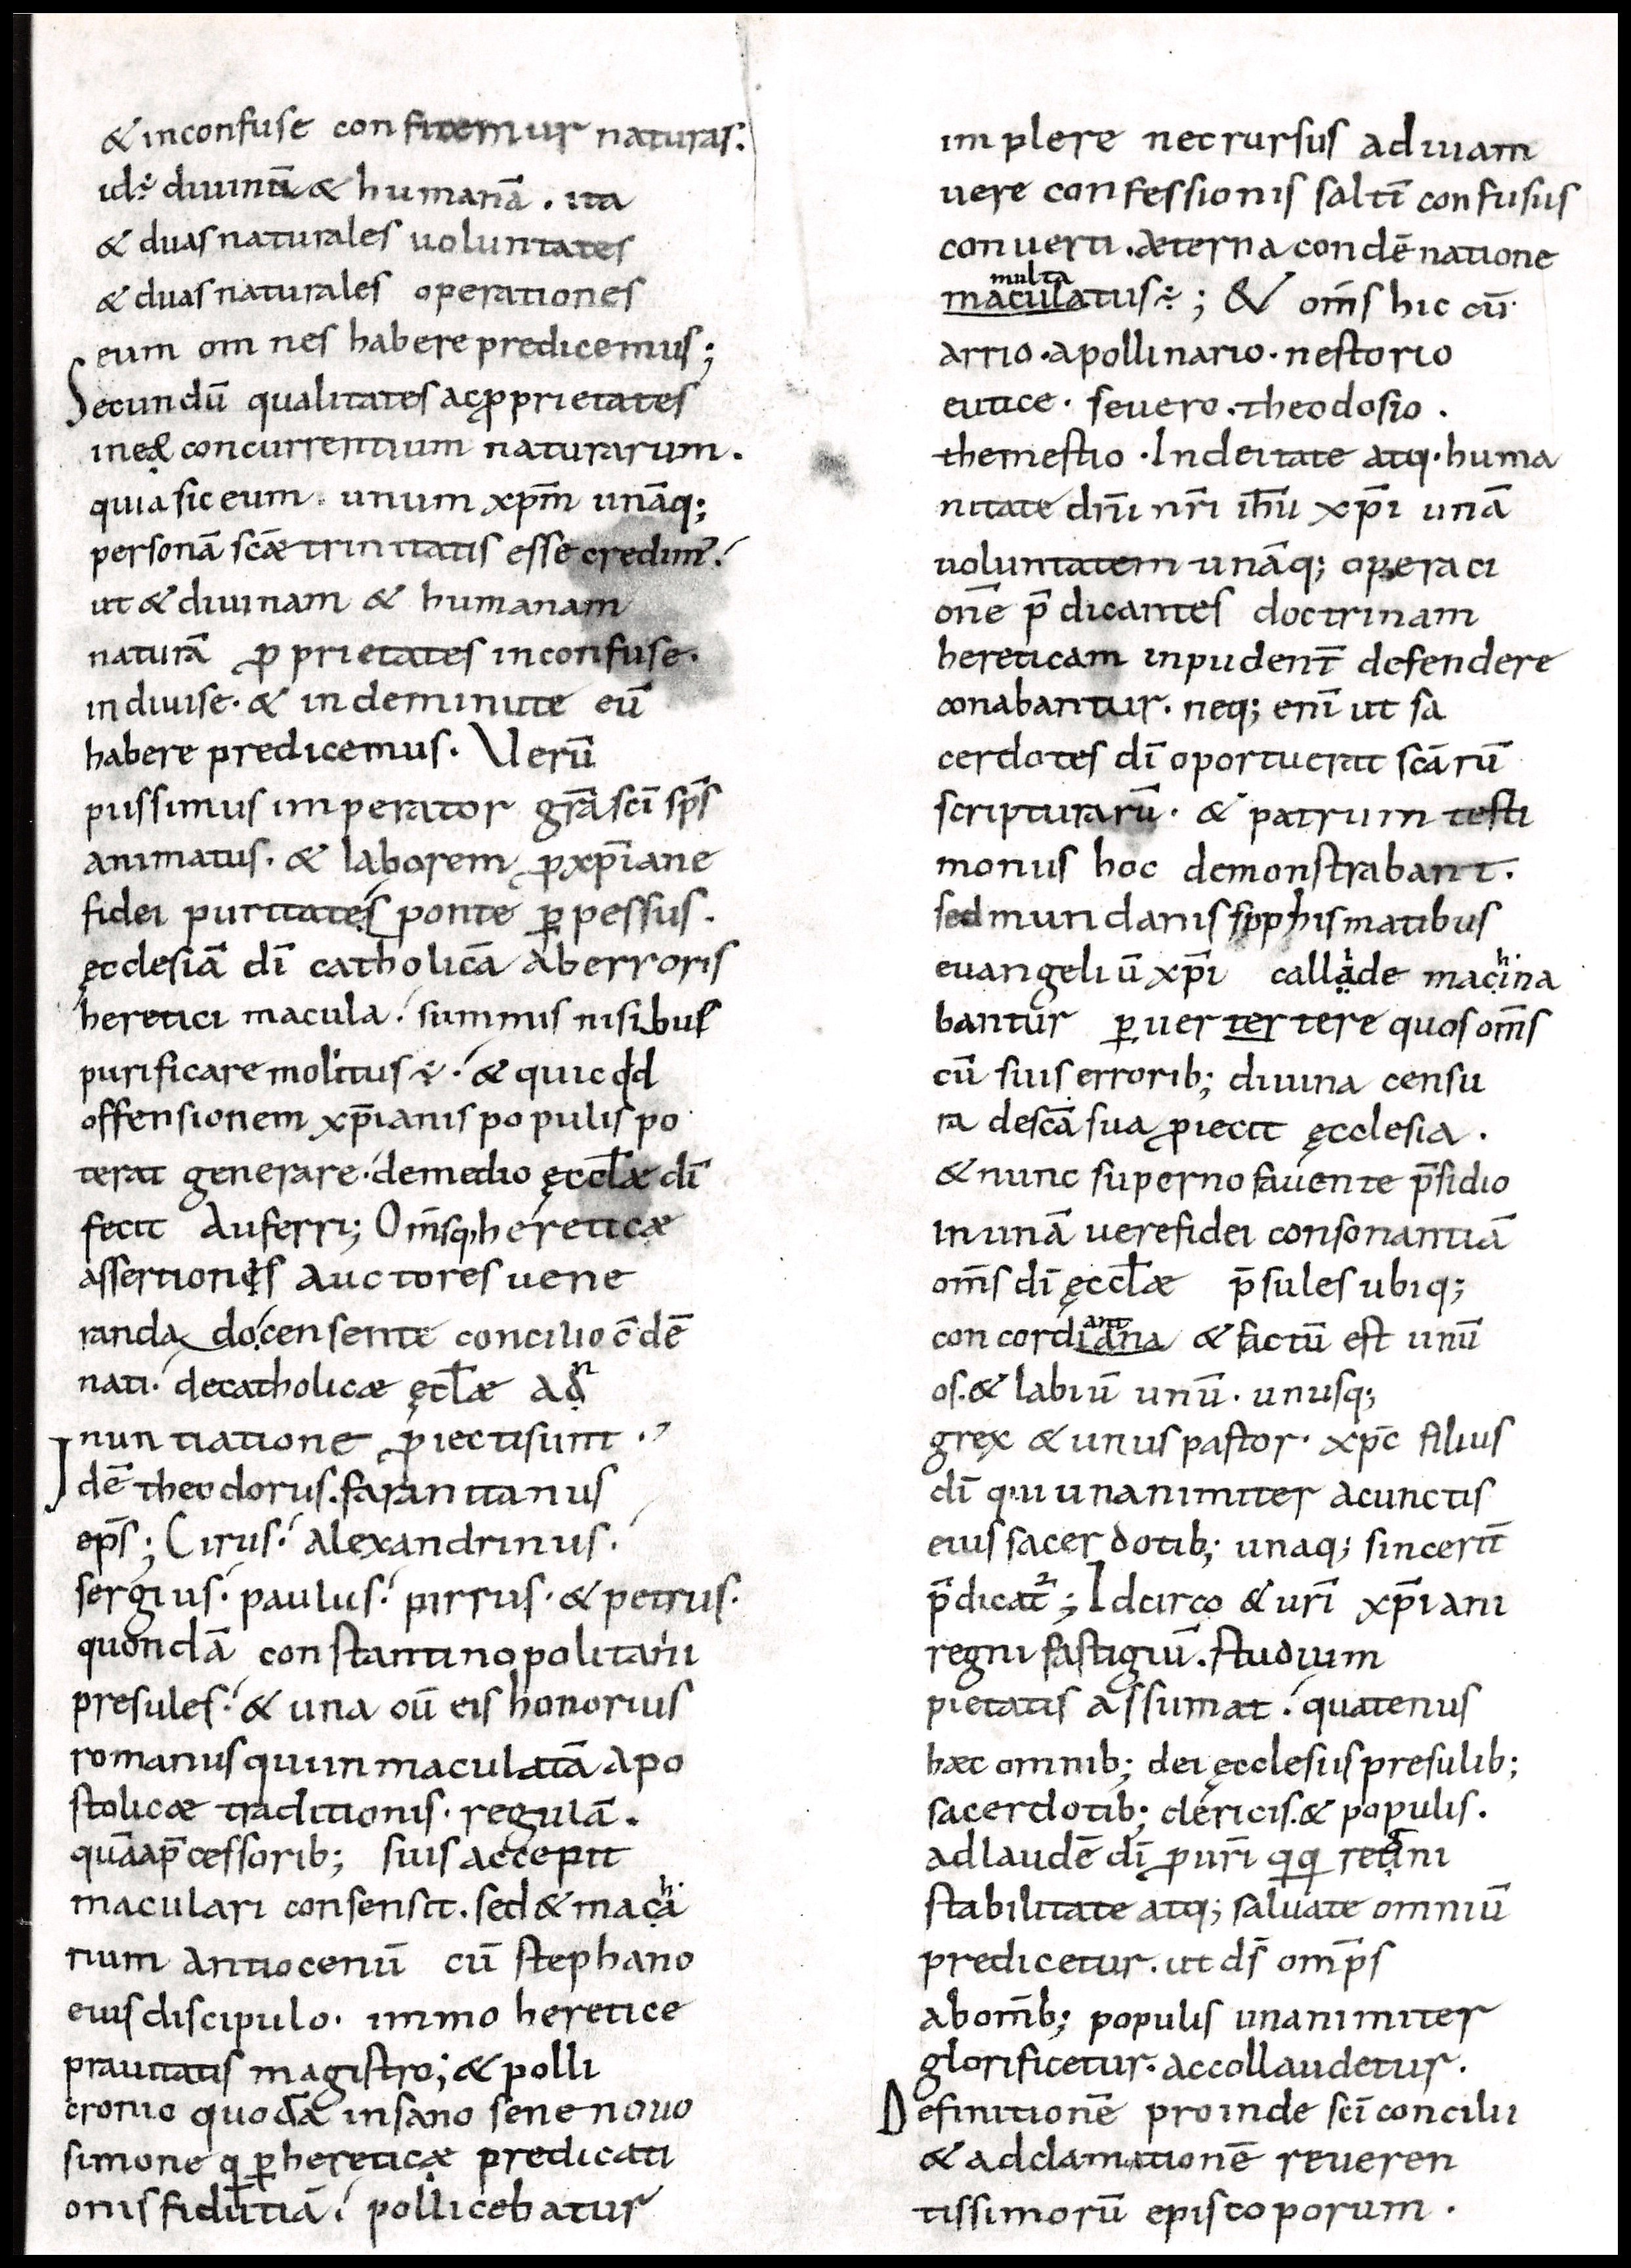 & inconfuse confitemur naturas.
id÷ diuinā & humanā . ita
& duas naturales uoluntates
& duas naturales operationes
eum omnes habere predicemus;
Secundū qualitates ac ꝓprietates
in eo concurrentium naturarum .
quia sic eum . unum xp̄m unāq;
personā sc̄æ trinitatis esse credim'.
ut & diuinam & humanam
naturā ꝓprietates inconfuse.
indiuise · & indeminute eū
habere predicemus · Uerū
piissimus imperator gr̄a sc̄i sp̄s
animatus · & laborem ꝓ xp̄iane
fidei puritates ponte ꝑpessus .
ęcclesiā dī catholicā ab erroris
heretici macula . summis nisibus
purificare molitus ÷ . & quicqd
offensionem xp̄ianis populis po
terat generare · de medio ęccl̄æ dī
fecit auferri; Om̄sq, hereticæ
assertionis auctores uene
randa docensente concilio c̄dē
nati · de catholicæ ęcl̄æ adn
nuntiatione ꝓiecti sunt .
Idē theodorus . faranitanus
ep̄s; Cirus . alexandrinus .
sergius . paulus . pirrus · & petrus .
quondā constantinopolitani
presules . & una cū eis honorius
romanus qui inmaculatā apo
stolicæ traditionis · regulā .
quā a p̄cessorib; suis accepit
maculari consensit . sed & macha
rium antiocenū cū stephano
eius discipulo · immo heretice
prauitatis magistro; & polli
cronio quodā insano sene nouo
simone q ꝑ hereticæ predicati
onis fidutiā . pollicebatur
implere nec rursus ad uiam
uere confessionis saltī confusus
conuerti . æterna condēnatione
multa
maculatus÷; & om̄s hic cū
arrio · apollinario · nestorio
eutice · seuero . theodosio .
themestio · In deitate atq · huma
nitate dn̄i nr̄i ih̄u xp̄i unā
uoluntatem unāq; operaci
onē p̄dicantes doctrinam
hereticam inpudent̄ defendere
conabantur . neq; enī ut sa
cerdotes dī oportuerat sc̄arū
scripturarū · & patrum testi
moniis hoc demonstrabant .
sed mundanis sophismatibus
euangeliū xp̄i callide machina
bantur ꝑuertertere quos om̄s
cū suis errorib; diuina censu
ra de sc̄a sua ꝓiecit ęcclesia .
& nunc superno fauente p̄sidio
in unā uere fidei consonantiā
om̄s dī ęccl̄æ p̄sules ubiq;
ant
concordiana & factū est unū
os . & labiū unū · unusq;
grex & unus pastor · xp̄c filius
dī qui unanimiter a cunctis
eius sacerdotib; unaq; sincerit̄
p̄dicat̄; Idcirco & ur̄i xp̄iani
regni fastigiū . studium
pietatis assumat . quatenus
hæc omnib; dei ęcclesiis presulib;
sacerdotib; clericis . & populis .
ad laudē dī ꝓ ur̄i qq regni
stabilitate atq; saluate omniū
predicetur . ut d̄s omp̄s
ab om̄b; populis unanimiter
glorificetur . accollaudetur .
Definitionē proinde sc̄i concilii
& adclamationē reueren
tissimorū episcoporum .